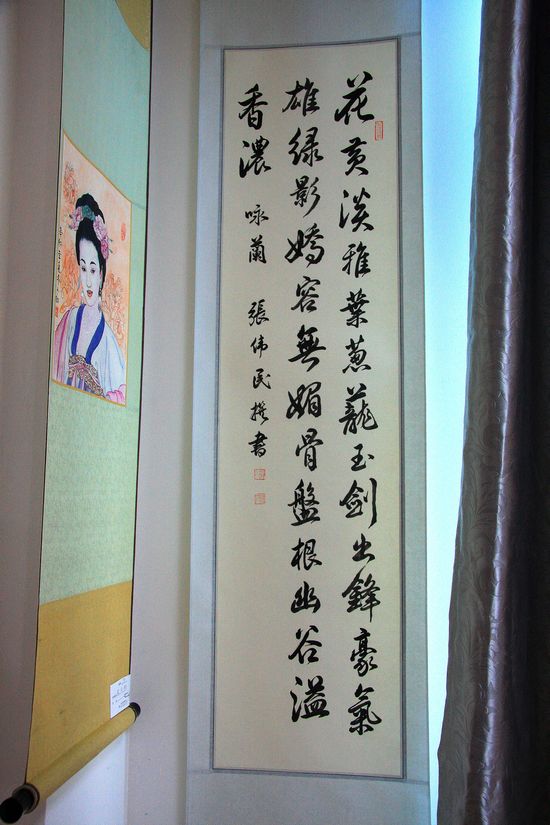 花黄淡雅葉蔥蘢玉劍出鋒豪氣
雄緑影嬌容無媚骨盤根幽谷溢
香濃
咏蘭 張伟民撰書